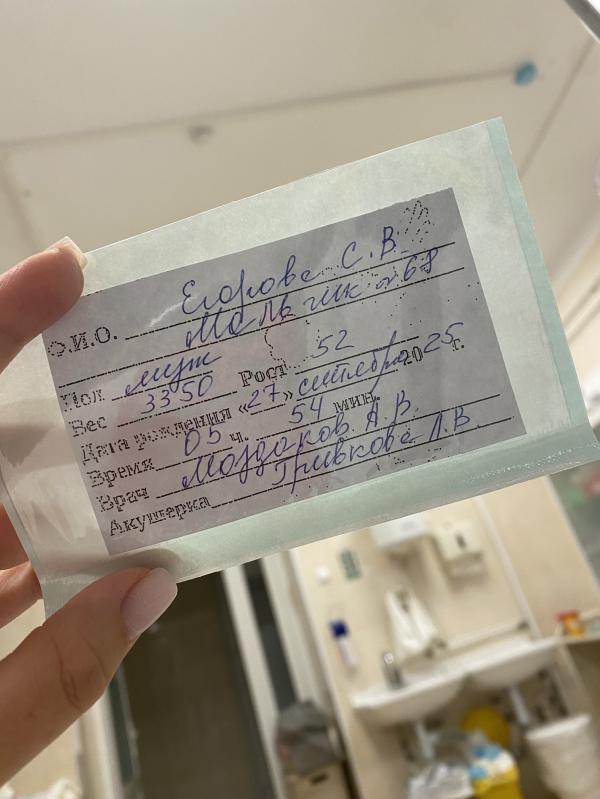 Ф.И.О. Егорова С.В.
Мальчик №68
Пол муж
Вес 3350 Рост 52
Дата рождения «27» сентября 2025 г.
Время 05 ч. 54 мин.
Врач Моздоков А.В.
Акушерка Гривкова Л.В.